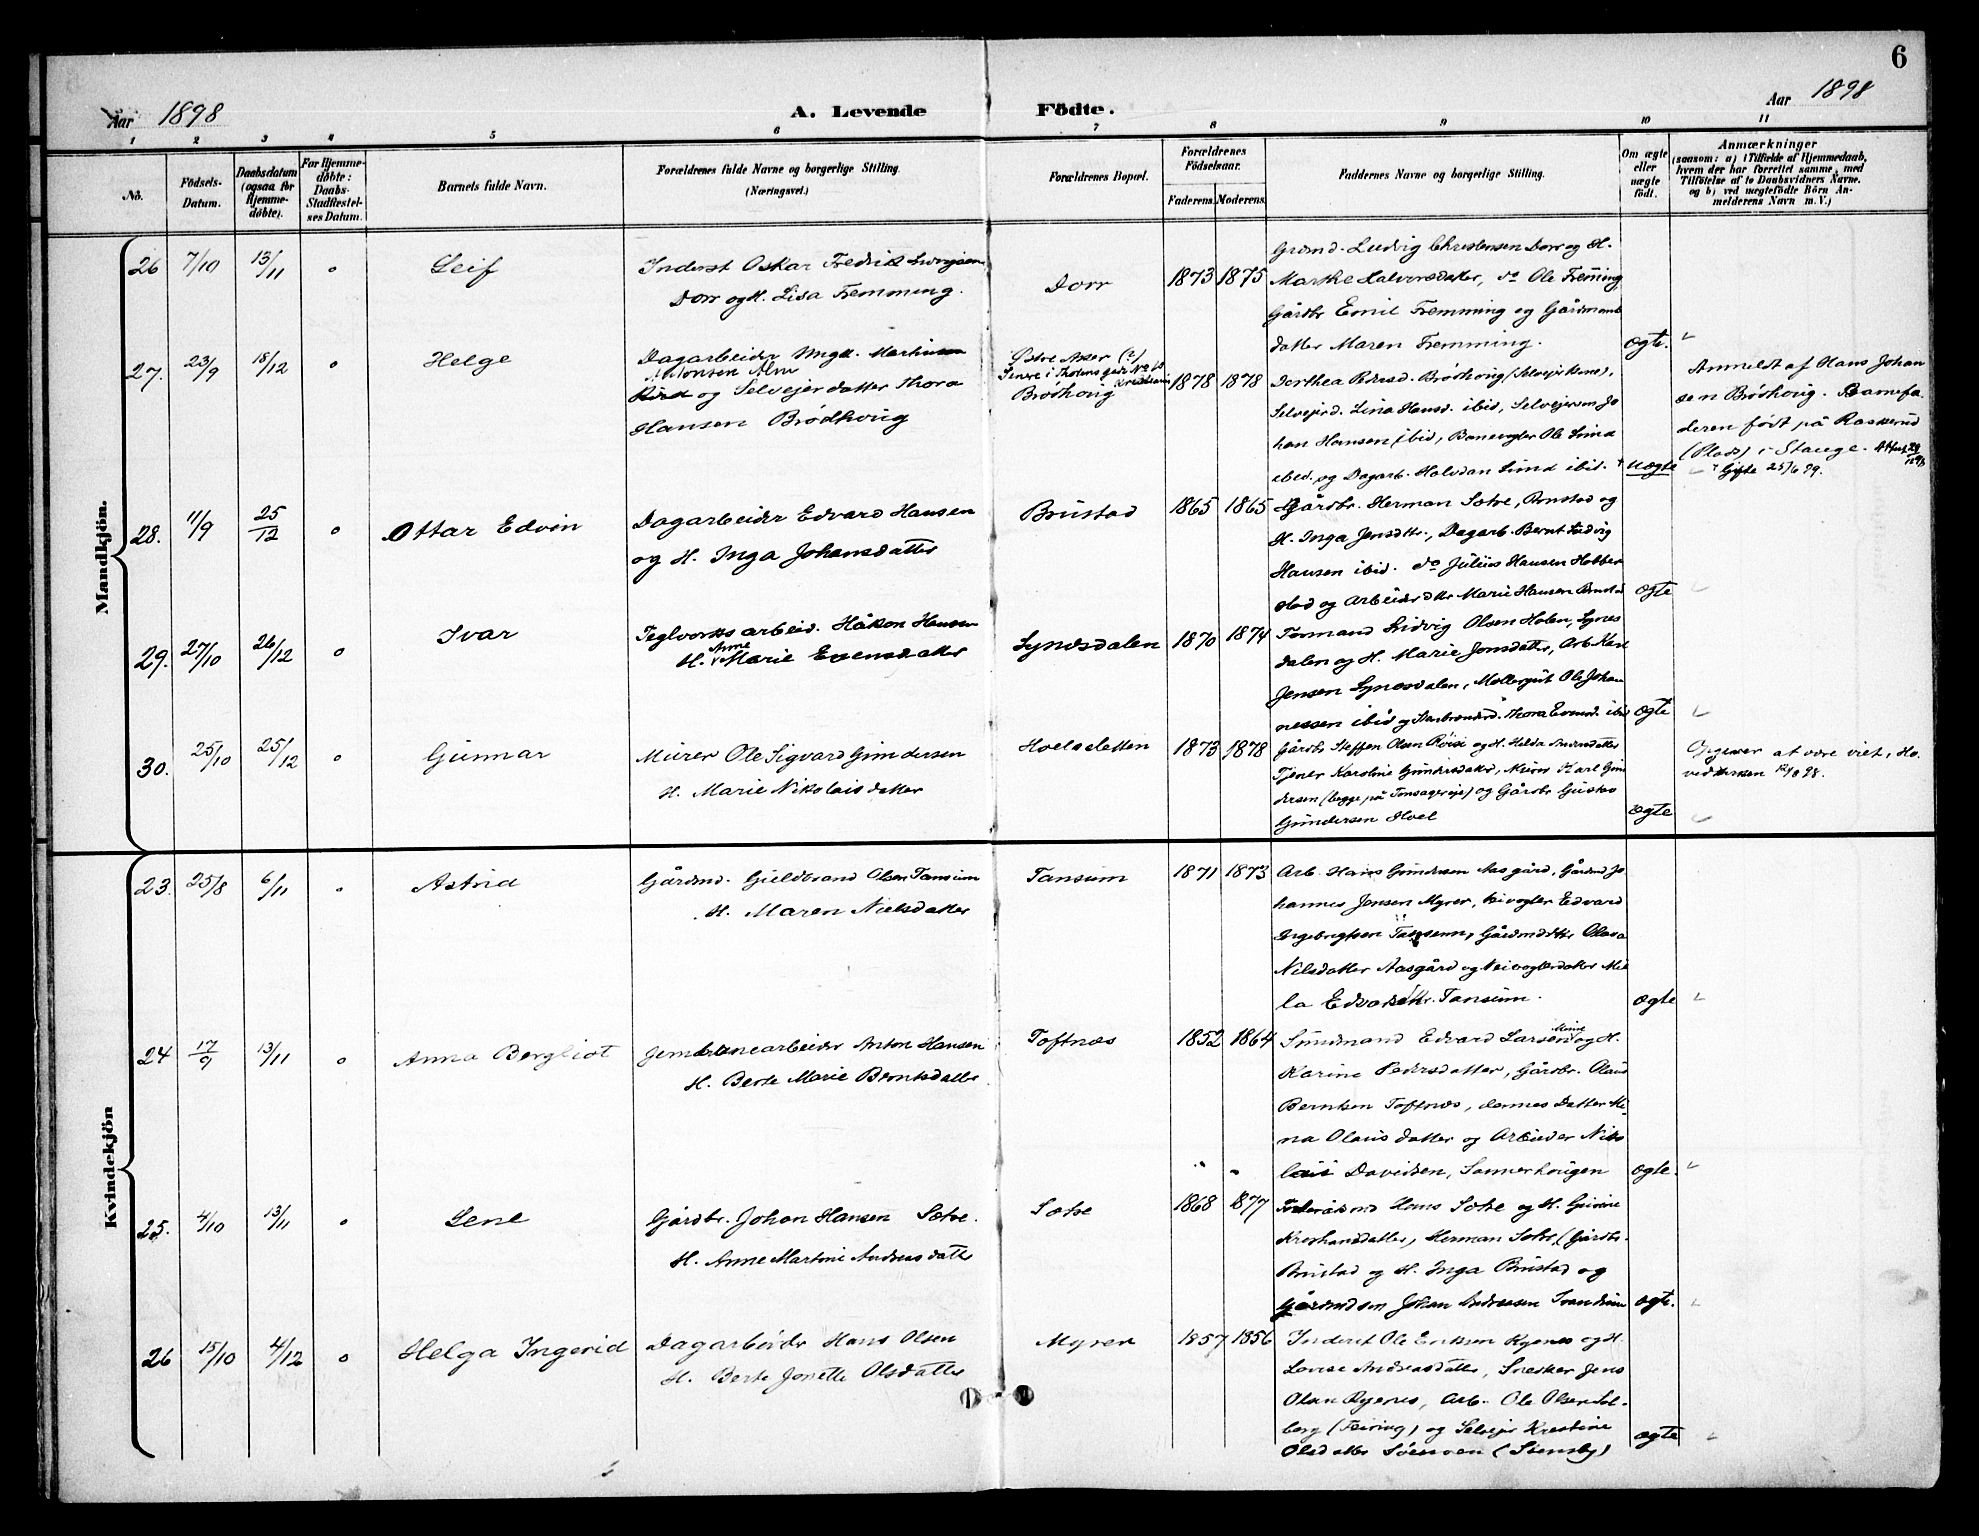 6
Aar 1898
A. Levende Födte.
Aar 1898
1 2 3 4 5 6 7 8 9 10 11
No.
Födsels-Datum.
Daabsdatum (ogsaa for Hjemme-døbte).
For Hjemme-døbte: Daabs-Stadfæstel-ses Datum.
Barnets fulde Navn.
Forældrenes fulde Navne og borgerlige Stilling.
(Næringsvei.)
Forældrenes Bopæl.
Forældrenes Fødselsaar.
Faderens. Moderens.
Faddernes Navne og borgerlige Stilling.
Om ægte eller uægte født.
Anmærkninger
(saasom: a) i Tilfælde af Hjemmedaab,
hvem der har forrettet samme, med
Tilføielse af to Daabsvidners Navne.
og b) ved uægtefødte Børn An-
melderens Navn m. V.)
Mandkjön.
26 7/10 13/11 o Leif
Inderst Oskar Fredrik
Dorr og H. Lisa Fremming.
Dorr 1873 1875
Grdmd. Ludvig Christensen Dorr og H.
Marthe Halvorsdatter, do Ole Fremming
Gårdbr Emil Fremming og Gårdmands
datter Maren Fremming. ægte.
27. 23/9 18/12 o Helge
Dagarbeider Ungk.
Alm
og Selveierdatter Thora
Hansen Brödhoug
Brödhoug
1878 1878
Dorthea Pedersd. Brödhoug (Selveierkone),
Selveierd. Lina Hansd. ibid, Selveiersøn Jo
han Hansen ibid, Banevogter Ole Lund
ibid. og Dagarb. Halvdan Lund ibid. uægte
Anmeldt af Hans Johan
sen Brödhoug. Barnefa
deren født på Raskerud
(Plads) i Stange.
Gifte 25/6 99.
28. 11/9 25/12 o Ottar Edvin
Dagarbeider Edvard Hansen
og H. Inga Johansdatter
Brustad 1865 1865
Gårdbr. Herman Sætre, Brustad og
H. Inga Jensdtr., Dagarb. Bernt Ludvig
Hansen ibid. do Julius Hansen Hobber
stad og Arbeiderdtr Marie Hansen Brustad ægte
29. 27/10 26/12 o Ivar
Teglværksarbeid. Håkon Hansen
H. Anne Marie Evensdatter
Lyndsdalen 1870 1874
Tømmand Ludvig Olsen Holen, Lynes
dalen og H. Marie Jonsdatter, Arb. Karl
Jensen Lynesdalen, Møllergut Ole Johan
nessen ibid og Thora Evensd. ibid ægte
30. 25/10 25/12 o Gunnar
Murer Ole Sigvard Gundersen
H. Marie Nikolaisdatter
Hoelsletten 1873 1878
Gårdbr Steffen Olsen Røise og H. Helda Andersdatter
Tjener Karoline Gundersdatter, Murer Karl Gun
dersen (begge på Tonsagereie) og Gårdbr Gustav
Gundersen Hoel ægte
Opgiver at være viet, Ho
ved 98.
Kvindekjön
23. 25/8 6/11 o Astrid
Gårdmd. Guldbrand Olsen Tansum
H. Maren Nielsdatter
Tansum 1871 1873
Arb. Hans Gundersen Aasgård, Gårdmd Jo
hannes Jensen Myrer, Veivogter Edvard
Ingebrigtsen Tansum, Gårdmdtr Olava
Nilsdatter Aasgård og Veivogterdatter Mil
la Edvardsdtr. Tansum. ægte
24 17/9 13/11 o Anna Bergliot
Jernbanearbeider Anton Hansen
H. Berte Marie Berntsdatter
Toftnæs 1852 1864
Sundmand Edvard Larsen Minne og H.
Karine Pedersdatter, Gårdbr. Olaus
Berntsen Toftnæs, dennes Datter Mi-
na Olausdatter og Arbeider Niko
lai Davidsen, Sannerhougen ægte.
25. 4/10 13/11 o Lene
Gårdbr. Johan Hansen Sætre.
H. Anne Martine Andreasdatter
Sætre 1868 1877
Føderådsmd Hans Sætre og H. Gunine
Kristiansdatter, Herman Sætre (Gårdbr.
Brustad og H. Inga Brustad og
Gårdmdsøn Johan Andreasen ægte.
26 15/10 4/12 o Helga Ingerid
Dagarbeider Hans Olsen
H. Berte Jonette Olsdatter
Myrer 1857 1856
Inderst Ole Eriksen Rynes og H.
Lovise Andreasdatter, Snedker Jens
Olsen Rynes, Arb. Ole Olsen Sol-
berg (Feiring) og Selveier Kristine
Olsdatter (Stensby) ægte